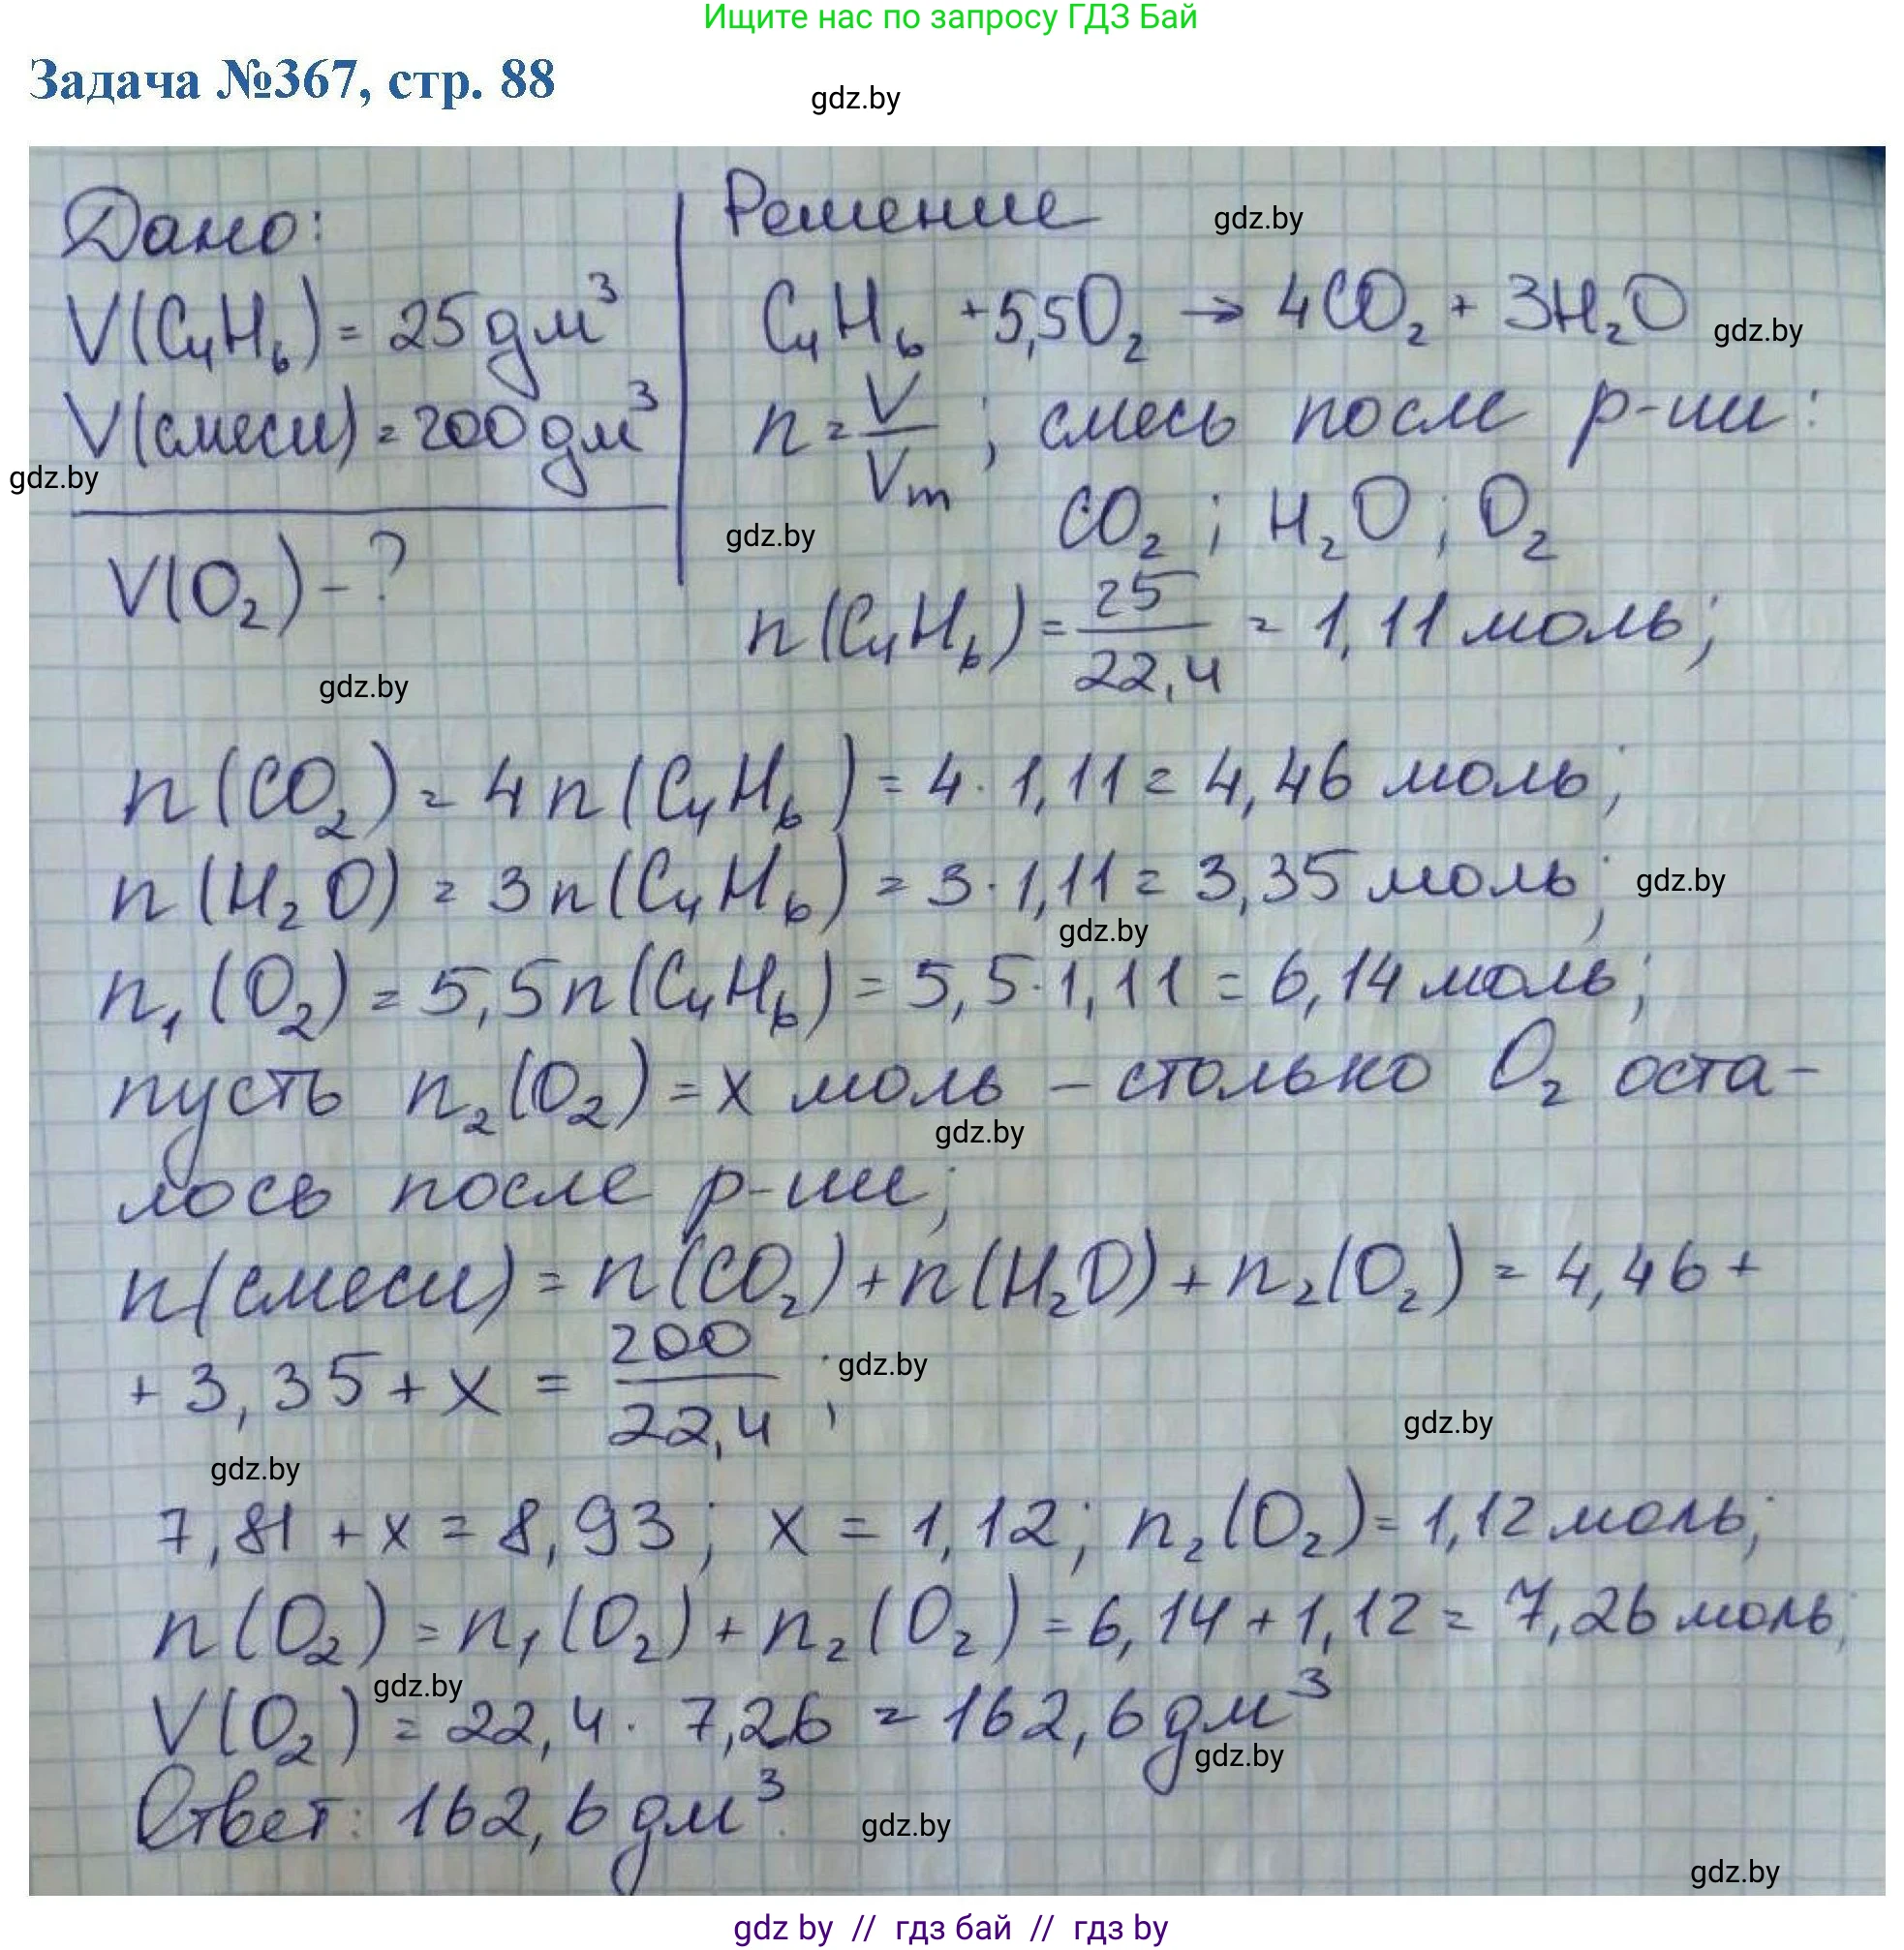 Ищите нас по запросу ГДЗ Бай
Задача №367, стр. 88
gdz.by
Дано:
V(C₄H₆) = 25 дм³
V(смеси) = 200 дм³
gdz.by
V(O₂) - ?
gdz.by
Решение
gdz.by
C₄H₆ + 5,5O₂ → 4CO₂ + 3H₂O
gdz.by
n = V/Vm ; смесь после р-ии:
CO₂ ; H₂O ; O₂
gdz.by
n(C₄H₆) = 25/22,4 = 1,11 моль;
n(CO₂) = 4n(C₄H₆) = 4·1,11 = 4,46 моль;
n(H₂O) = 3n(C₄H₆) = 3·1,11 = 3,35 моль;
gdz.by
gdz.by
n₁(O₂) = 5,5n(C₄H₆) = 5,5·1,11 = 6,14 моль;
пусть n₂(O₂) = x моль – столько O₂ оста-
gdz.by
лось после р-ии;
n(смеси) = n(CO₂) + n(H₂O) + n₂(O₂) = 4,46 +
+ 3,35 + x = 200/22,4 ;
gdz.by
gdz.by
gdz.by
7,81 + x = 8,93; x = 1,12; n₂(O₂) = 1,12 моль;
n(O₂) = n₁(O₂) + n₂(O₂) = 6,14 + 1,12 = 7,26 моль;
gdz.by
V(O₂) = 22,4 · 7,26 = 162,6 дм³
gdz.by
Ответ: 162,6 дм³.
gdz.by
gdz.by
gdz by // гдз бай // гдз by